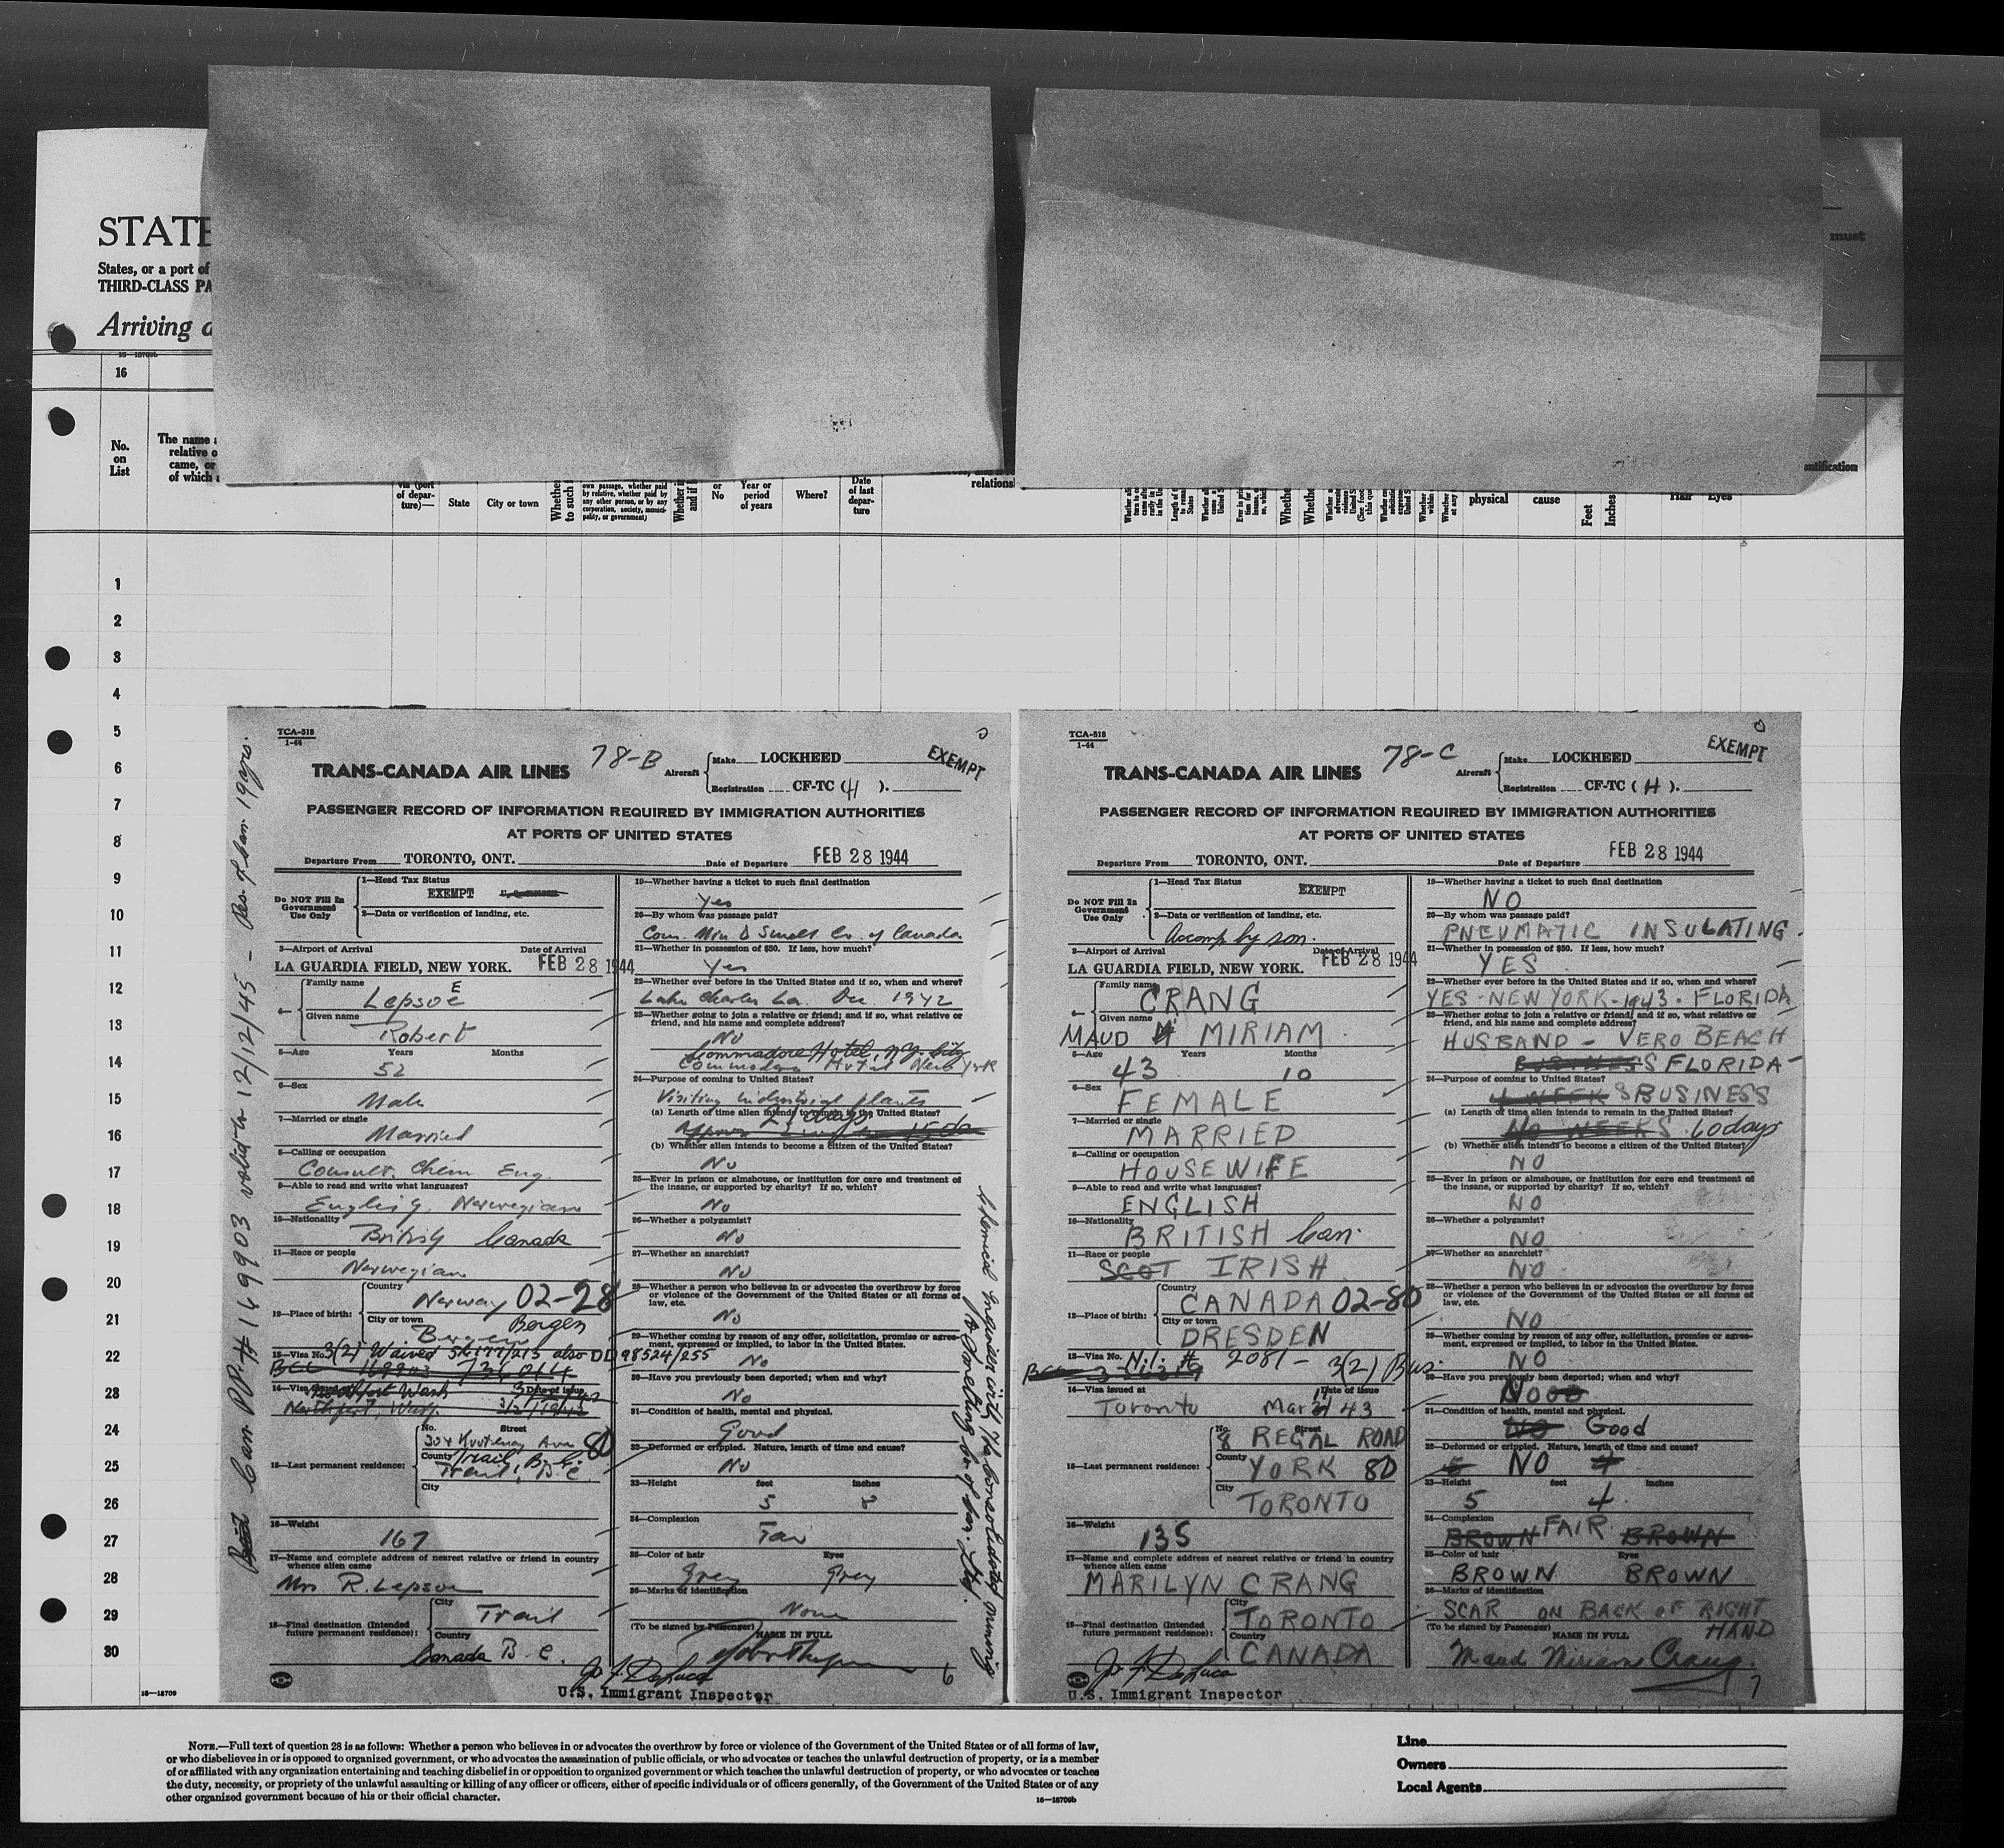 STATE
States, or a port of
THIRD-CLASS PA
Arriving a
16
No.
on
List
The name
relative o
came, or
of which
via (port
of depar-
ture)—
State
City or town
Whether
to such
own passage, whether paid
by relative, whether paid by
any other person, or by any
corporation, society, munici-
pality, or government)
or
No
Year or
period
of years
Where?
Date
of last
depar-
ture
relations
physical
cause
Feet
Inches
must
1
2
3
4
5
6
7
8
9
10
11
12
13
14
15
16
17
18
19
20
21
22
23
24
25
26
27
28
29
30
16—18709
TCA-518
1-44
78-B
TRANS-CANADA AIR LINES
Aircraft
Make LOCKHEED
Registration CF-TC (H ).
EXEMPT
PASSENGER RECORD OF INFORMATION REQUIRED BY IMMIGRATION AUTHORITIES
AT PORTS OF UNITED STATES
Departure From TORONTO, ONT. Date of Departure FEB 28 1944
Do NOT Fill In
Government
Use Only
1—Head Tax Status
EXEMPT
2—Data or verification of landing, etc.
3—Airport of Arrival Date of Arrival
LA GUARDIA FIELD, NEW YORK. FEB 28 1944
4—
Family name
Lepsoe
E
Given name
Robert
5—Age Years Months
52
6—Sex
Male
7—Married or single
Married
8—Calling or occupation
Consult. Chem Eng.
9—Able to read and write what languages?
English, Norwegian
10—Nationality
British Canada
11—Race or people
Norwegian
12—Place of birth:
Country
Norway 02-28
City or town
Bergen
Bergen
13—Visa No. 3(2) Waived 56177/215 also DD 98524/255
14—Visa issued at Date of issue
Northport, Wash
15—Last permanent residence:
No. Street
304 Kootenay Ave 80
County Trail, B.C.
Trail, B.C.
City
16—Weight
167
17—Name and complete address of nearest relative or friend in country
whence alien came
Mrs R. Lepsoe
18—Final destination (Intended
future permanent residence):
City
Trail
Country
Canada B.C.
U.S. Immigrant Inspector
19—Whether having a ticket to such final destination
Yes
20—By whom was passage paid?
Con. Min & Smelt Co. of Canada
21—Whether in possession of $50. If less, how much?
Yes
22—Whether ever before in the United States and if so, when and where?
Lake Charles La. Dec. 1942
23—Whether going to join a relative or friend; and if so, what relative or
friend, and his name and complete address?
No
Commodore Hotel, N.Y. City
Commodore Hotel New York
24—Purpose of coming to United States?
Visiting industrial plants
(a) Length of time alien intends to remain in the United States?
(b) Whether alien intends to become a citizen of the United States?
No
25—Ever in prison or almshouse, or institution for care and treatment of
the insane, or supported by charity? If so, which?
No
26—Whether a polygamist?
No
27—Whether an anarchist?
No
28—Whether a person who believes in or advocates the overthrow by force
or violence of the Government of the United States or all forms of
law, etc.
No
29—Whether coming by reason of any offer, solicitation, promise or agree-
ment, expressed or implied, to labor in the United States?
No
30—Have you previously been deported; when and why?
No
31—Condition of health, mental and physical.
Good
32—Deformed or crippled. Nature, length of time and cause?
No
33—Height feet inches
5 8
34—Complexion
Tan
35—Color of hair Eyes
Grey Grey
36—Marks of identification
None
(To be signed by Passenger) NAME IN FULL
6
Can PP. # 149903 valid to 12/12/45 — Res. of Can. 19 yrs.
Chemical Engineer with the Consolidated Mining & Smelting Co of Can. Ltd.
TCA-518
1-44
78-C
TRANS-CANADA AIR LINES
Aircraft
Make LOCKHEED
Registration CF-TC (H ).
EXEMPT
PASSENGER RECORD OF INFORMATION REQUIRED BY IMMIGRATION AUTHORITIES
AT PORTS OF UNITED STATES
Departure From TORONTO, ONT. Date of Departure FEB 28 1944
Do NOT Fill In
Government
Use Only
1—Head Tax Status
EXEMPT
2—Data or verification of landing, etc.
Accomp by son.
3—Airport of Arrival Date of Arrival
LA GUARDIA FIELD, NEW YORK. FEB 28 1944
4—
Family name
CRANG
Given name
MAUD MIRIAM
5—Age Years Months
43 10
6—Sex
FEMALE
7—Married or single
MARRIED
8—Calling or occupation
HOUSEWIFE
9—Able to read and write what languages?
ENGLISH
10—Nationality
BRITISH Can.
11—Race or people
SCOT IRISH
12—Place of birth:
Country
CANADA 02-80
City or town
DRESDEN
13—Visa No. Nil: # 2081 — 3(2) Bus.
14—Visa issued at Date of issue
Toronto Mar 43
15—Last permanent residence:
No. Street
8 REGAL ROAD
County
YORK 80
City
TORONTO
16—Weight
135
17—Name and complete address of nearest relative or friend in country
whence alien came
MARILYN CRANG
18—Final destination (Intended
future permanent residence):
City
TORONTO
Country
CANADA
U.S. Immigrant Inspector
19—Whether having a ticket to such final destination
NO
20—By whom was passage paid?
PNEUMATIC INSULATING.
21—Whether in possession of $50. If less, how much?
YES
22—Whether ever before in the United States and if so, when and where?
YES - NEW YORK - 1943. FLORIDA
23—Whether going to join a relative or friend; and if so, what relative or
friend, and his name and complete address?
HUSBAND - VERO BEACH
BUSINESS FLORIDA -
24—Purpose of coming to United States?
4 WEEKS BUSINESS
(a) Length of time alien intends to remain in the United States?
NO WEEKS 60 days
(b) Whether alien intends to become a citizen of the United States?
NO
25—Ever in prison or almshouse, or institution for care and treatment of
the insane, or supported by charity? If so, which?
NO
26—Whether a polygamist?
NO
27—Whether an anarchist?
NO
28—Whether a person who believes in or advocates the overthrow by force
or violence of the Government of the United States or all forms of
law, etc.
NO
29—Whether coming by reason of any offer, solicitation, promise or agree-
ment, expressed or implied, to labor in the United States?
NO
30—Have you previously been deported; when and why?
NO
31—Condition of health, mental and physical.
NO Good
32—Deformed or crippled. Nature, length of time and cause?
NO
33—Height feet inches
5 4
34—Complexion
BROWN FAIR BROWN
35—Color of hair Eyes
BROWN BROWN
36—Marks of identification
SCAR ON BACK OF RIGHT
HAND
(To be signed by Passenger) NAME IN FULL
Maud Miriam Crang.
7
NOTE.—Full text of question 28 is as follows: Whether a person who believes in or advocates the overthrow by force or violence of the Government of the United States or of all forms of law,
or who disbelieves in or is opposed to organized government, or who advocates the assassination of public officials, or who advocates or teaches the unlawful destruction of property, or is a member
of or affiliated with any organization entertaining and teaching disbelief in or opposition to organized government or which teaches the unlawful destruction of property, or who advocates or teaches
the duty, necessity, or propriety of the unlawful assaulting or killing of any officer or officers, either of specific individuals or of officers generally, of the Government of the United States or of any
other organized government because of his or their official character.
16—18709b
Line
Owners
Local Agents